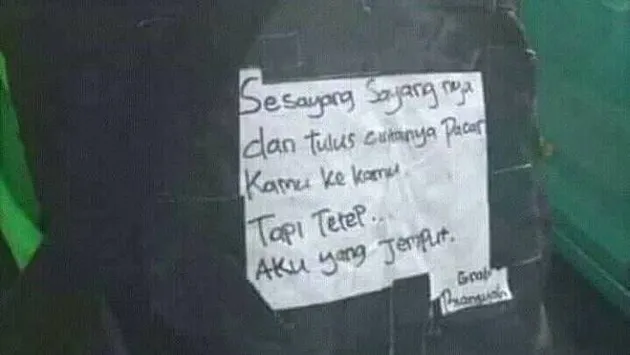 Sesayang Sayang nya
dan tulus cintanya Pacar
Kamu ke kamu.
Tapi Tetep...
AKU yang Jemput.
Grab